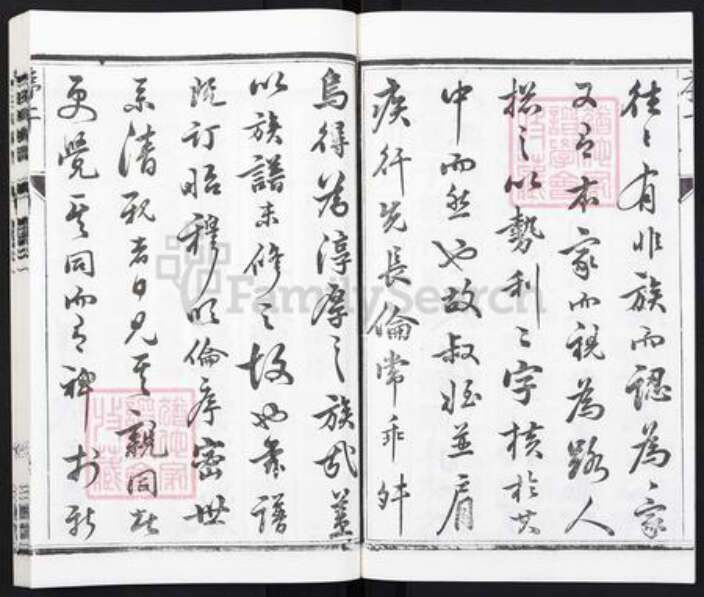 往々有非族而認為一家
又有本家而視為路人
搃之以勢利二字横於其
中而然也故叔姪並肩
疾行先長倫常乖舛
烏得為淳厚之族哉蓋
以族譜未修之故也如譜
既訂昭穆明倫序密世
系清親者日見其親同者
更覺其同而有裨於
FamilySearch